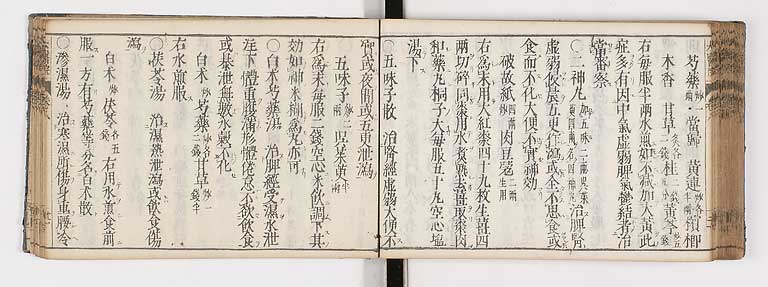 芍藥 當歸 黃連 檳榔
木香 甘草 桂 黃芩
右每服半兩水煎如不減加大黃此
症多有因中氣虛弱脾氣鬱結者治
當審察
○二神丸 治脾腎
虛弱侵晨五更作瀉或全不思食或
食而不化大便不實神効
破故紙 四兩 肉豆蔻 二兩 生用
右爲末用大紅棗四十九枚生薑四
兩切碎同棗用水煑熟去薑取棗肉
和藥丸桐子大每服五十丸空心塩
湯下
○五味子散 治腎經虛弱大便不
實或夜間或五更泄瀉
五味子 吳茱萸
右爲末每服二錢空心米飲調下其
効如神米糊爲丸亦可
○白朮芍藥湯 治脾經受濕水泄
注下體重困弱不欲飲食
或暴泄無數水穀不化
白朮 芍藥 甘草
右水煎服
○茯苓湯 治濕熱泄瀉或飲食傷
瀉
白朮 茯苓 各五錢 右用水煎食前
服一方有芍藥等分名白朮散
○滲濕湯 治寒濕所傷身重腰冷